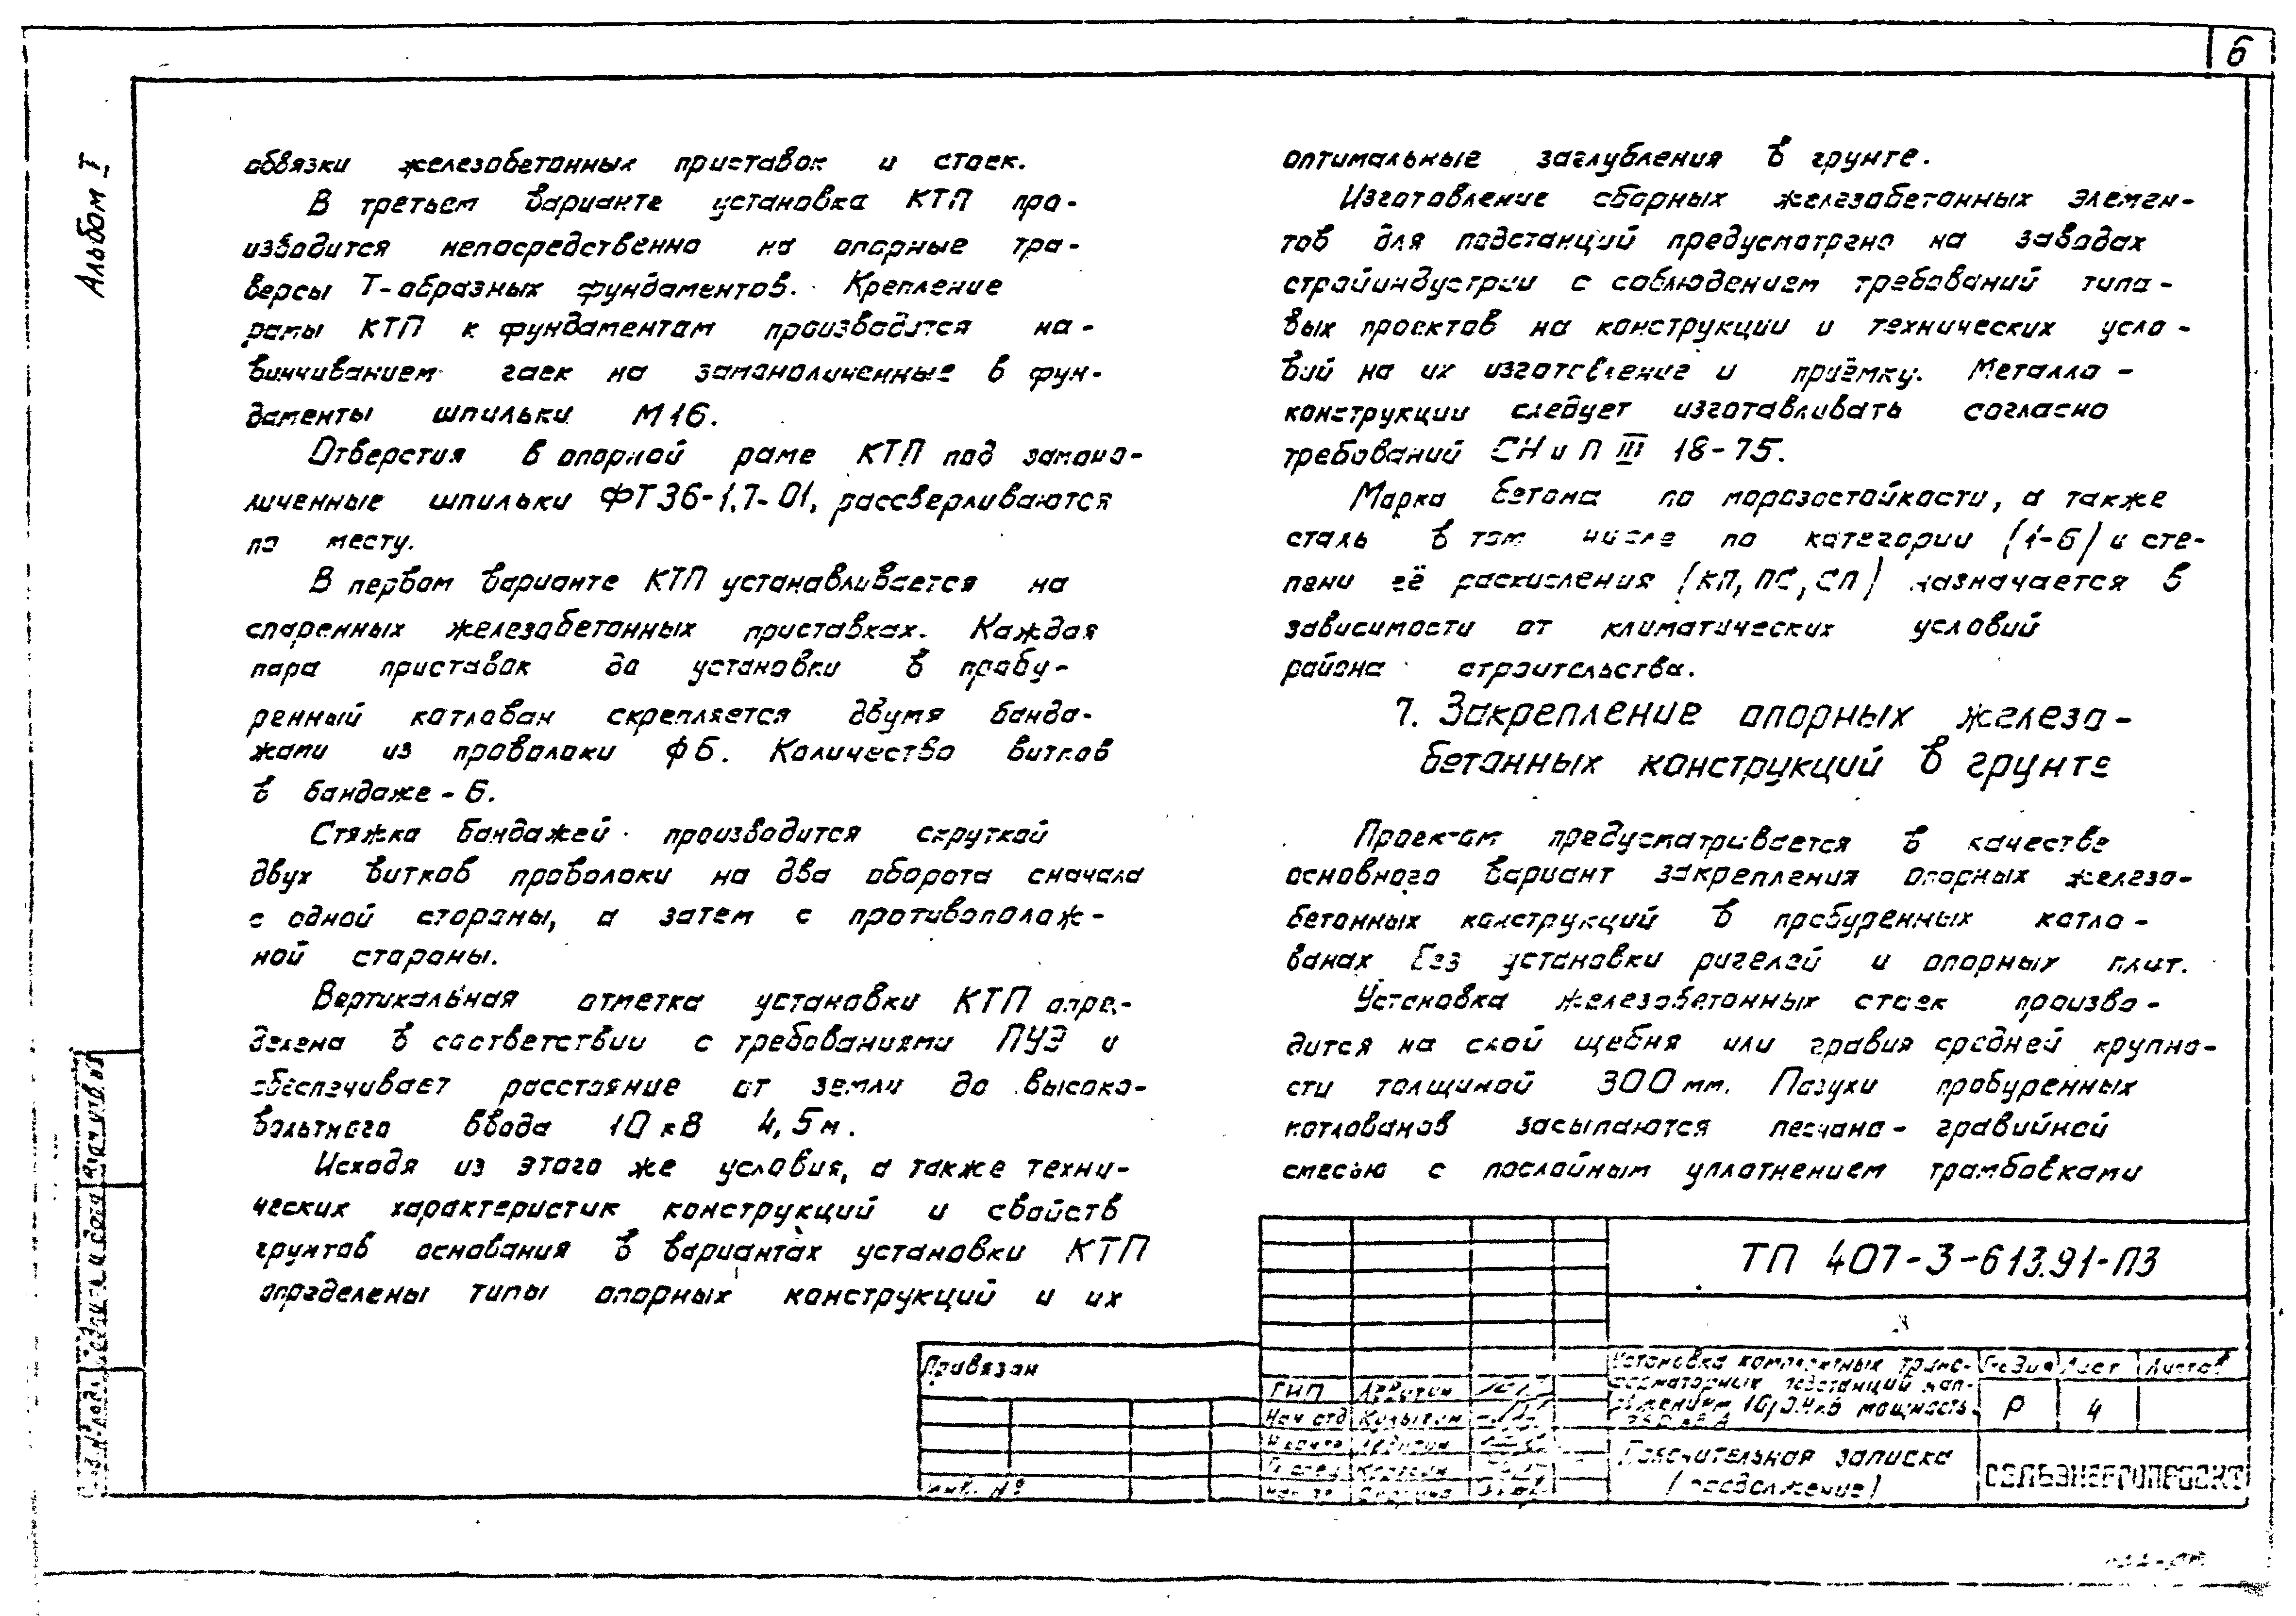 6
Альбом I
обвязки железобетонных приставок и стоек.
В третьем варианте установка КТП про-
изводится непосредственно на опорные тра-
версы Т-образных фундаментов. Крепление
рамы КТП к фундаментам производится на-
винчиванием гаек на замоноличенные в фун-
даменты шпильки М16.
Отверстия в опорной раме КТП под замоно-
личенные шпильки ФТ36-1,7-01, рассверливаются
по месту.
В первом варианте КТП устанавливается на
спаренных железобетонных приставках. Каждая
пара приставок до установки в пробу-
ренный котлован скрепляется двумя банда-
жами из проволоки ф6. Количество витков
в бандаже-6.
Стяжка бандажей производится скруткой
двух витков проволоки на два оборота сначала
с одной стороны, а затем с противополож-
ной стороны.
Вертикальная отметка установки КТП опре-
делена в соответствии с требованиями ПУЭ и
обеспечивает расстояние от земли до высоко-
вольтного ввода 10 кВ 4,5м.
Исходя из этого же условия, а также техни-
ческих характеристик конструкций и свойств
грунтов основания в вариантах установки КТП
определены типы опорных конструкций и их
оптимальные заглубления в грунте.
Изготовление сборных железобетонных элемен-
тов для подстанций предусмотрено на заводах
стройиндустрии с соблюдением требований типо-
вых проектов на конструкции и технических усло-
вий на их изготовление и приёмку. Металло-
конструкции следует изготавливать согласно
требований СНиП III 18-75.
Марка бетона по морозостойкости, а также
сталь в том числе по категории (1-6) и сте-
пени её раскисления (КП, ПС, СП) назначается в
зависимости от климатических условий
района строительства.
7. Закрепление опорных железо-
бетонных конструкций в грунте
Проектом предусматривается в качестве
основного вариант закрепления опорных железо-
бетонных конструкций в пробуренных котло-
ванах без установки ригелей и опорных плит.
Установка железобетонных стоек произво-
дится на слой щебня или гравия средней крупно-
сти толщиной 300мм. Пазухи пробуренных
котлованов засыпаются песчано-гравийной
смесью с послойным уплотнением трамбовками
ТП 407-3-613.91-ПЗ
Привязан
инв. №
ГИП
Нач отд
Установка комплектных транс-
форматорных подстанций нап-
ряжением 10/0,4кВ мощность
Стадия Лист Листов
Р 4
Пояснительная записка
(продолжение)
СЕЛЬЭНЕРГОПРОЕКТ